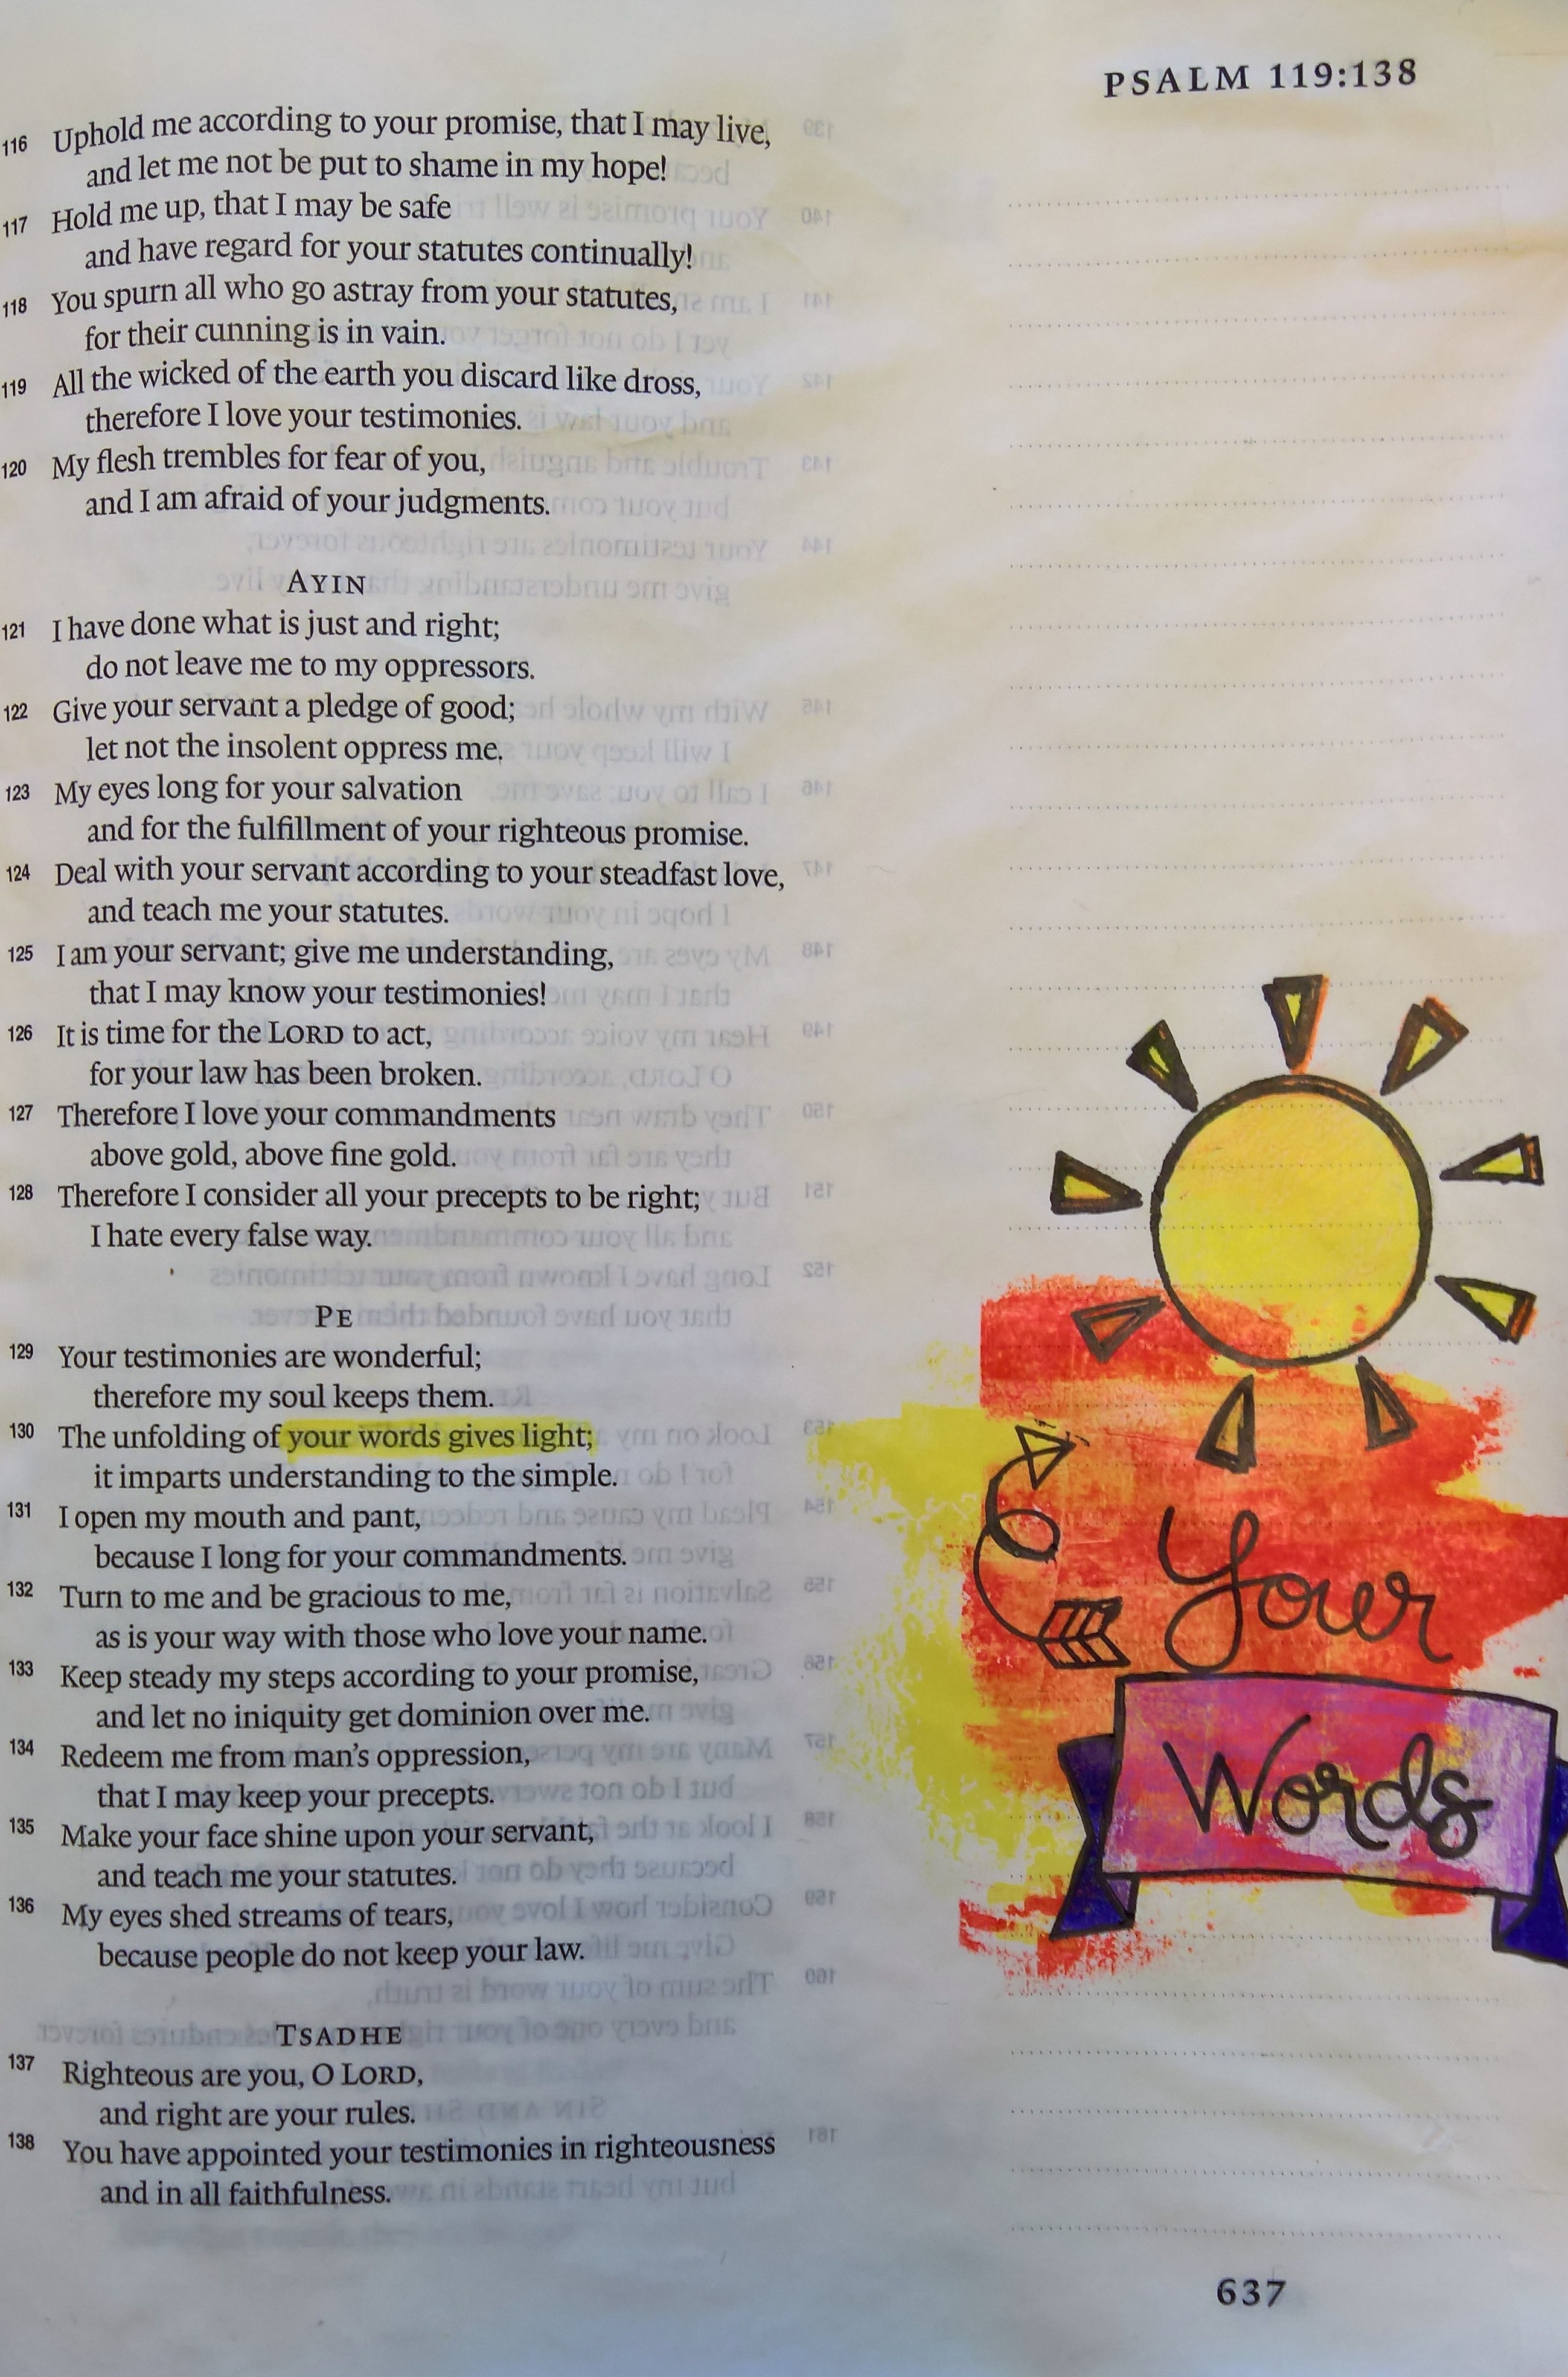 PSALM 119:138
116 Uphold me according to your promise, that I may live,
and let me not be put to shame in my hope!
117 Hold me up, that I may be safe
and have regard for your statutes continually!
118 You spurn all who go astray from your statutes,
for their cunning is in vain.
119 All the wicked of the earth you discard like dross,
therefore I love your testimonies.
120 My flesh trembles for fear of you,
and I am afraid of your judgments.
AYIN
121 I have done what is just and right;
do not leave me to my oppressors.
122 Give your servant a pledge of good;
let not the insolent oppress me.
123 My eyes long for your salvation
and for the fulfillment of your righteous promise.
124 Deal with your servant according to your steadfast love,
and teach me your statutes.
125 I am your servant; give me understanding,
that I may know your testimonies!
126 It is time for the LORD to act,
for your law has been broken.
127 Therefore I love your commandments
above gold, above fine gold.
128 Therefore I consider all your precepts to be right;
I hate every false way.
PE
129 Your testimonies are wonderful;
therefore my soul keeps them.
130 The unfolding of your words gives light;
it imparts understanding to the simple.
131 I open my mouth and pant,
because I long for your commandments.
132 Turn to me and be gracious to me,
as is your way with those who love your name.
133 Keep steady my steps according to your promise,
and let no iniquity get dominion over me.
134 Redeem me from man's oppression,
that I may keep your precepts.
135 Make your face shine upon your servant,
and teach me your statutes.
136 My eyes shed streams of tears,
because people do not keep your law.
TSADHE
137 Righteous are you, O LORD,
and right are your rules.
138 You have appointed your testimonies in righteousness
and in all faithfulness.
Your
Words
637